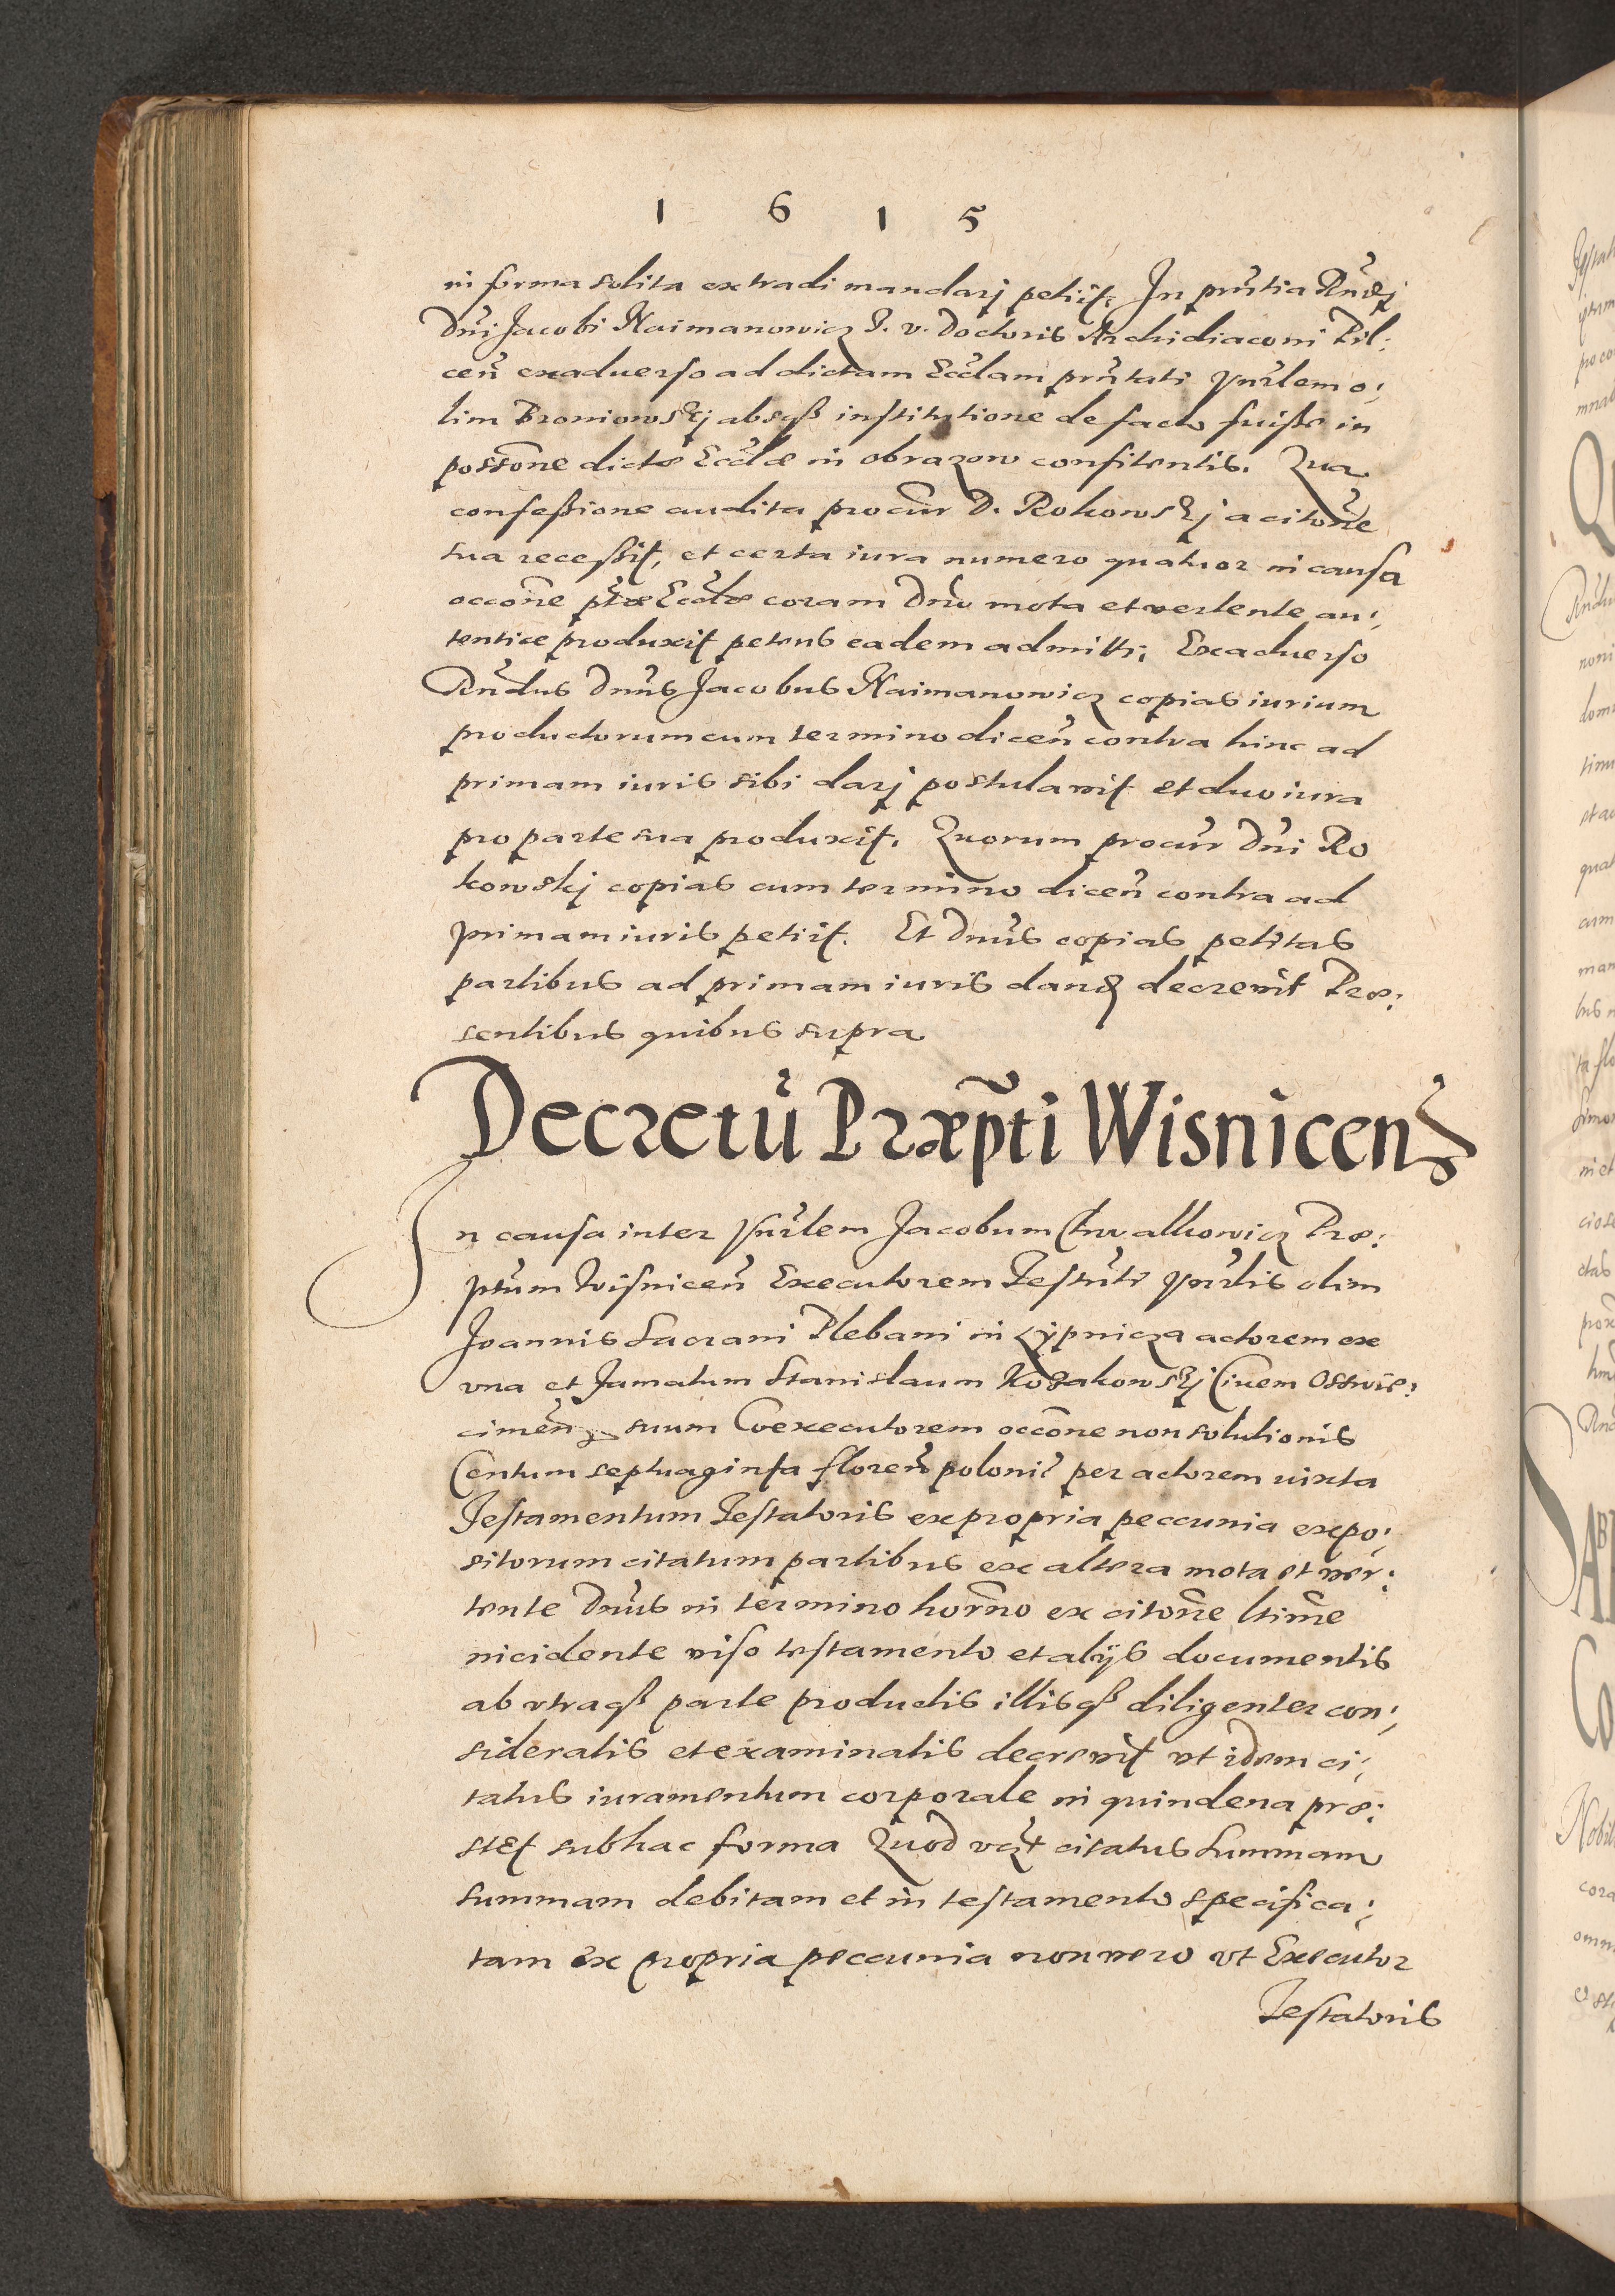 1 6 1 5
in forma solita extradi mandarj petijt. In pñtia Rñdj
Dñi Jacobi Naimanowicz J. v. Doctoris Archidiaconi Pil:
ceñ exaduerso ad dictam Eccłam pñtati Vnrłem o:
lim Broniowskj absqß institutione de facto fuiße in
possõne dictæ Eccłæ in obrazow confitentis. Qua
confeßione audita procur̃ D. Rokowskj a citõne
sua receßit, et certa iura numero quatuor in causa
occõne ptæ Eccłæ coram Dño mota et vertente au:
tentice produxit petens eadem admitti; Exaduerso
Rñdus Dñus Jacobus Naimanowicz copias iurium
productorum cum termino diceñ contra hinc ad
primam iuris sibi darj postulavit et duo iura
pro parte sua produxit. Quorum procur̃ Dñi Ro
kowskj copias cum termino diceñ contra ad
primam iuris petijt. Et Dñus copias petitas
partibus ad primam iuris dand decrevit Præ:
sentibus quibus supra
Decretũ Præp̃ti Wisnicen
In causa inter Vnrłem Jacobum Chwalkowicz Præ:
ptum Wisniceñ Executorem Testñti Vnrłis olim
Joannis Sacrani Plebani in Lypnicza actorem ex
vna et Famatum Stanislaum Kozakowskj Ciuem Osswie:
cimeñ suum Coexecutorem occõne non solutionis
Centum septuaginta floreñ poloni per actorem iuxta
Testamentum Testatoris ex propria peccunia expo:
sitorum citatum partibus ex altera mota et ver:
tente Dñus in termino horño ex citõne ltime
incidente viso testamento et alijs documentis
ab vtraqß parte productis illisqß diligenter con:
sideratis et examinatis decrevit vt idem ci:
tatus iuramentum corporale in quindena præ:
stet sub hac forma Quod vczt citatus Summam
summam debitam et in testamento specifica:
tam ex propria peccunia non vero vt Executor
Testatoris